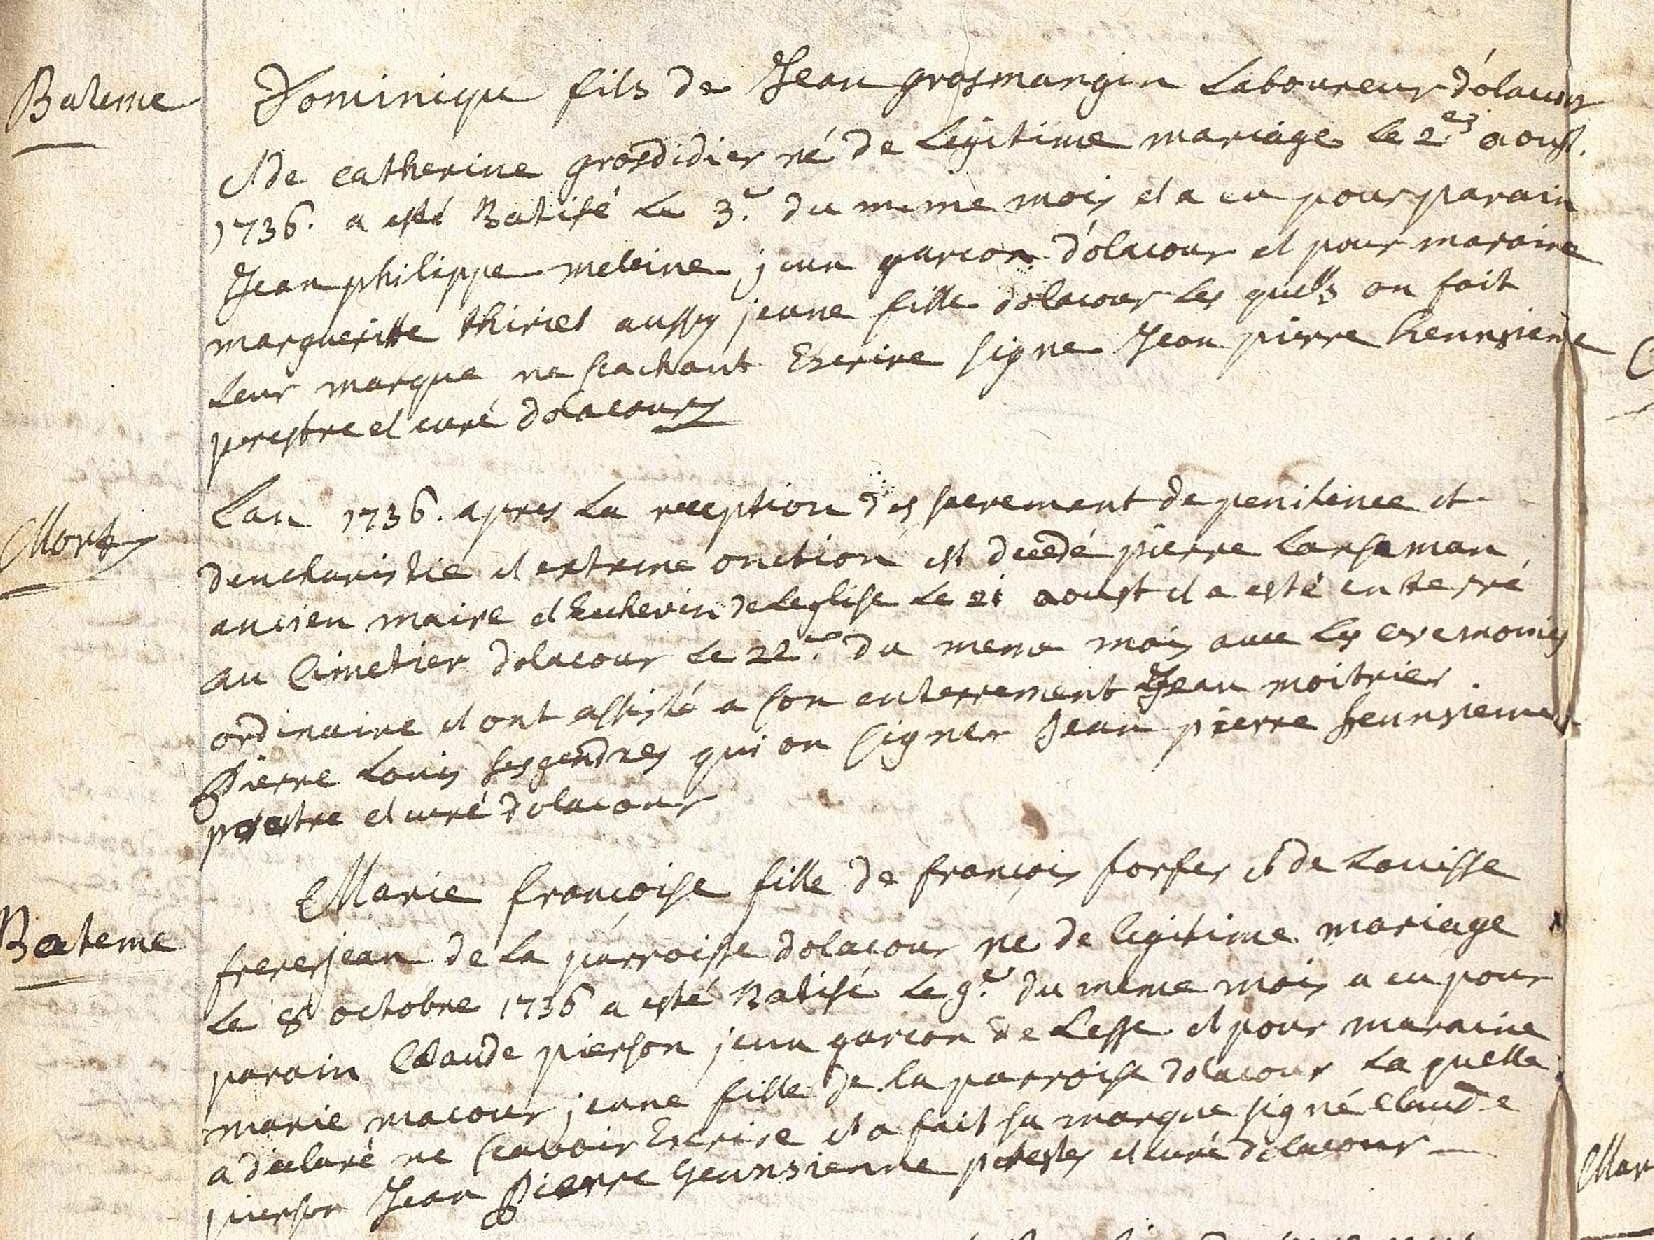 Bateme
Dominique fils de Jean grosmangin Laboureur dolacour
et de catherine grosdidier né de Legitime mariage Le 2 aoust
1736. a esté Batisé Le 3e du meme mois et a eu pour parain
Jean philippe jeun garcon dolacour et pour maraine
margueritte thiriet aussy jeune fille dolacour Les quells on fait
Leur marque ne scachant Escrire signe Jean pierre hennsienne
prestre et curé dolacour
Mort
Lan 1736. apres La reception des sacrement de penitence et
deucharistie et extreme onction est decedé pierre
ancien maire et Echevin de Leglise Le 21 aoust il a esté enterré
au Cimetier dolacour Le 22e du meme mois avec Les ceremonies
ordinaire et ont assisté a son enterrement Jean moitrier
Pierre Louis ses gendres qui on signer Jean pierre hennsienne
prestre et curé dolacour
Bateme
Marie françoise fille de françois forfer et de Louisse
frerejean de La parroisse dolacour ne de legitime mariage
Le 8 octobre 1736 a esté Batisé Le 9e du meme mois a eu pour
parain Claude pierson jeun garcon de Lesse et pour maraine
marie macour jeune fille de la parroisse dolacour La quelle
a declaré ne scavoir Escrire et a fait sa marque signé Claude
pierson Jean Pierre hennsienne prestre et curé dolacour
Mor